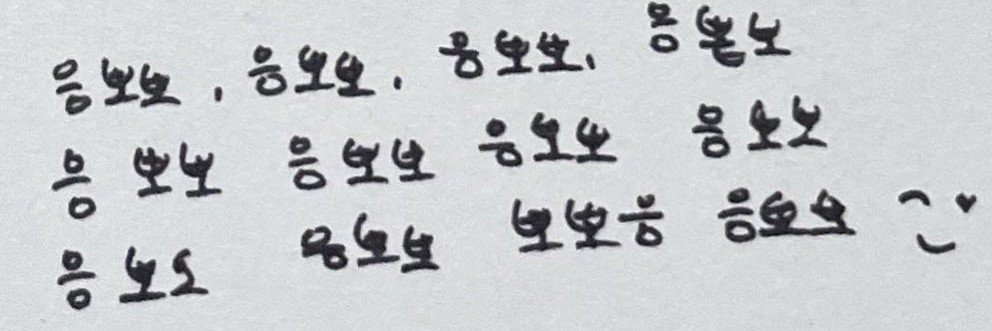 응보보, 응보보. 응보보, 응볻보
응 보보 응보보 응보보 응보보
응 보오 응보보 보보응 응보보